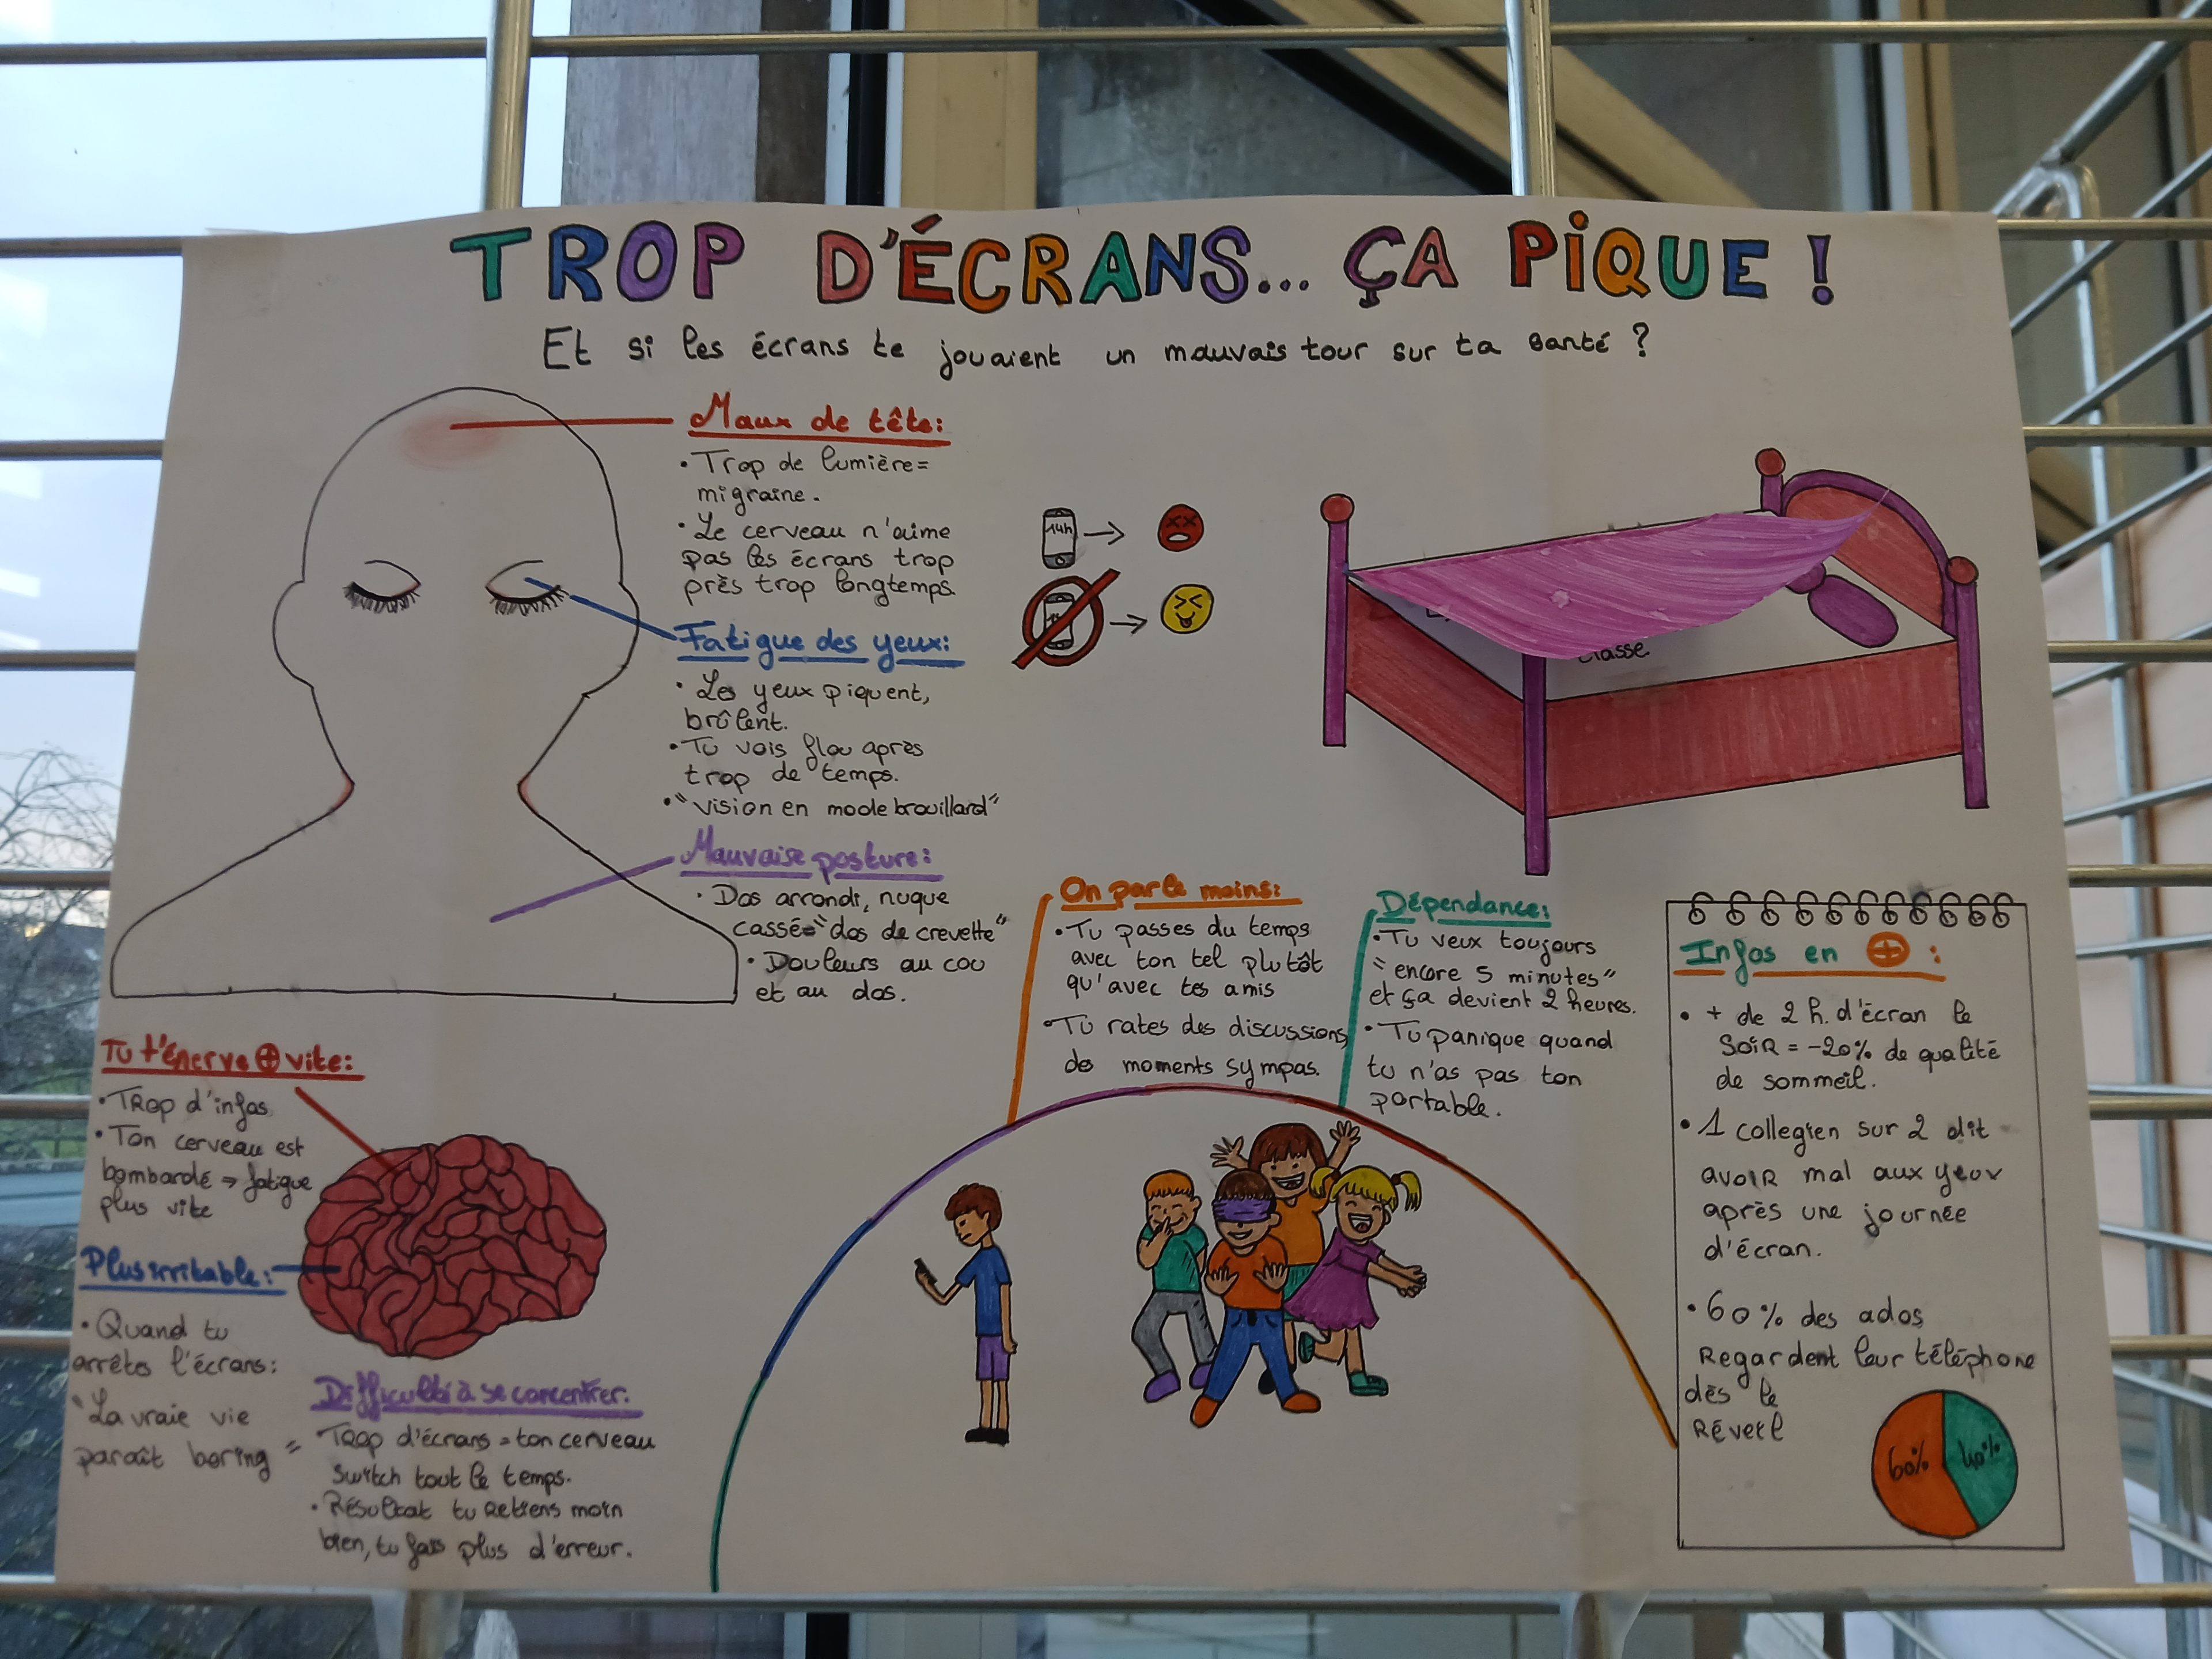 TROP D'ÉCRANS... ÇA PIQUE !
Et si les écrans te jouaient un mauvais tour sur ta santé ?
Maux de tête:
• Trop de lumière=
migraine.
• Le cerveau n'aime
pas les écrans trop
près trop longtemps.
14h
Fatigue des yeux:
• Les yeux piquent,
brûlent.
• Tu vois flou après
trop de temps.
• "vision en mode brouillard"
Mauvaise posture:
• Dos arrondi, nuque
cassé="dos de crevette"
• Douleurs au cou
et au dos.
classe.
Tu t'énerve + vite:
• Trop d'infos
• Ton cerveau est
bombardé → fatigue
plus vite
Plus irritable:
• Quand tu
arrêtes l'écrans:
"La vraie vie
paraît boring"
Difficulté à se concentrer:
Trop d'écrans = ton cerveau
switch tout le temps.
• Résultat tu retiens moin
bien, tu fais plus d'erreur.
On parle moins:
• Tu passes du temps
avec ton tel plutôt
qu'avec tes amis
• Tu rates des discussions,
des moments sympas.
Dépendance:
• Tu veux toujours
"encore 5 minutes"
et ça devient 2 heures.
• Tu panique quand
tu n'as pas ton
portable.
Infos en + :
• + de 2 h. d'écran le
soir = -20% de qualité
de sommeil.
• 1 collegien sur 2 dit
avoir mal aux yeux
après une journée
d'écran.
• 60% des ados
regardent leur téléphone
dès le
réveil
60% 40%